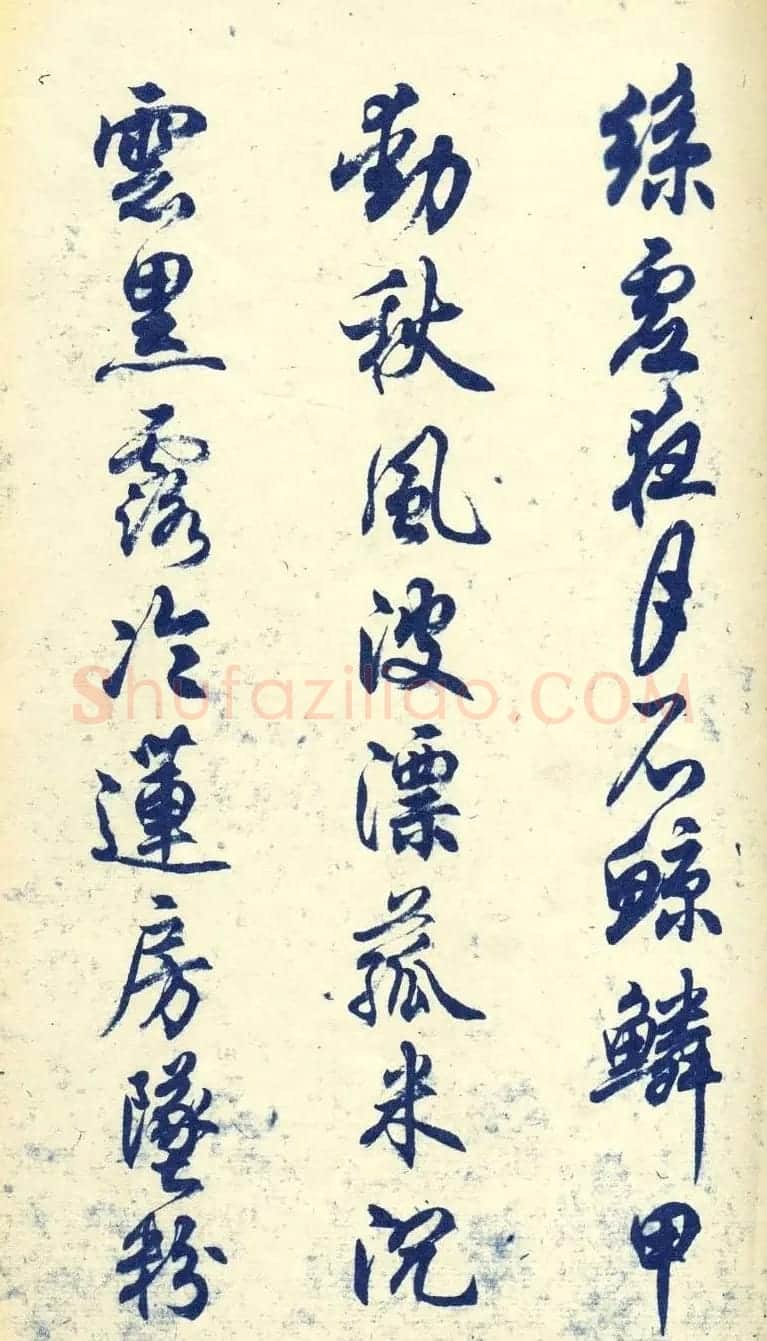 絲虛夜月石鯨鱗甲
動秋風波漂菰米沉
雲黑露冷蓮房墜粉
Shufaziliao.COM